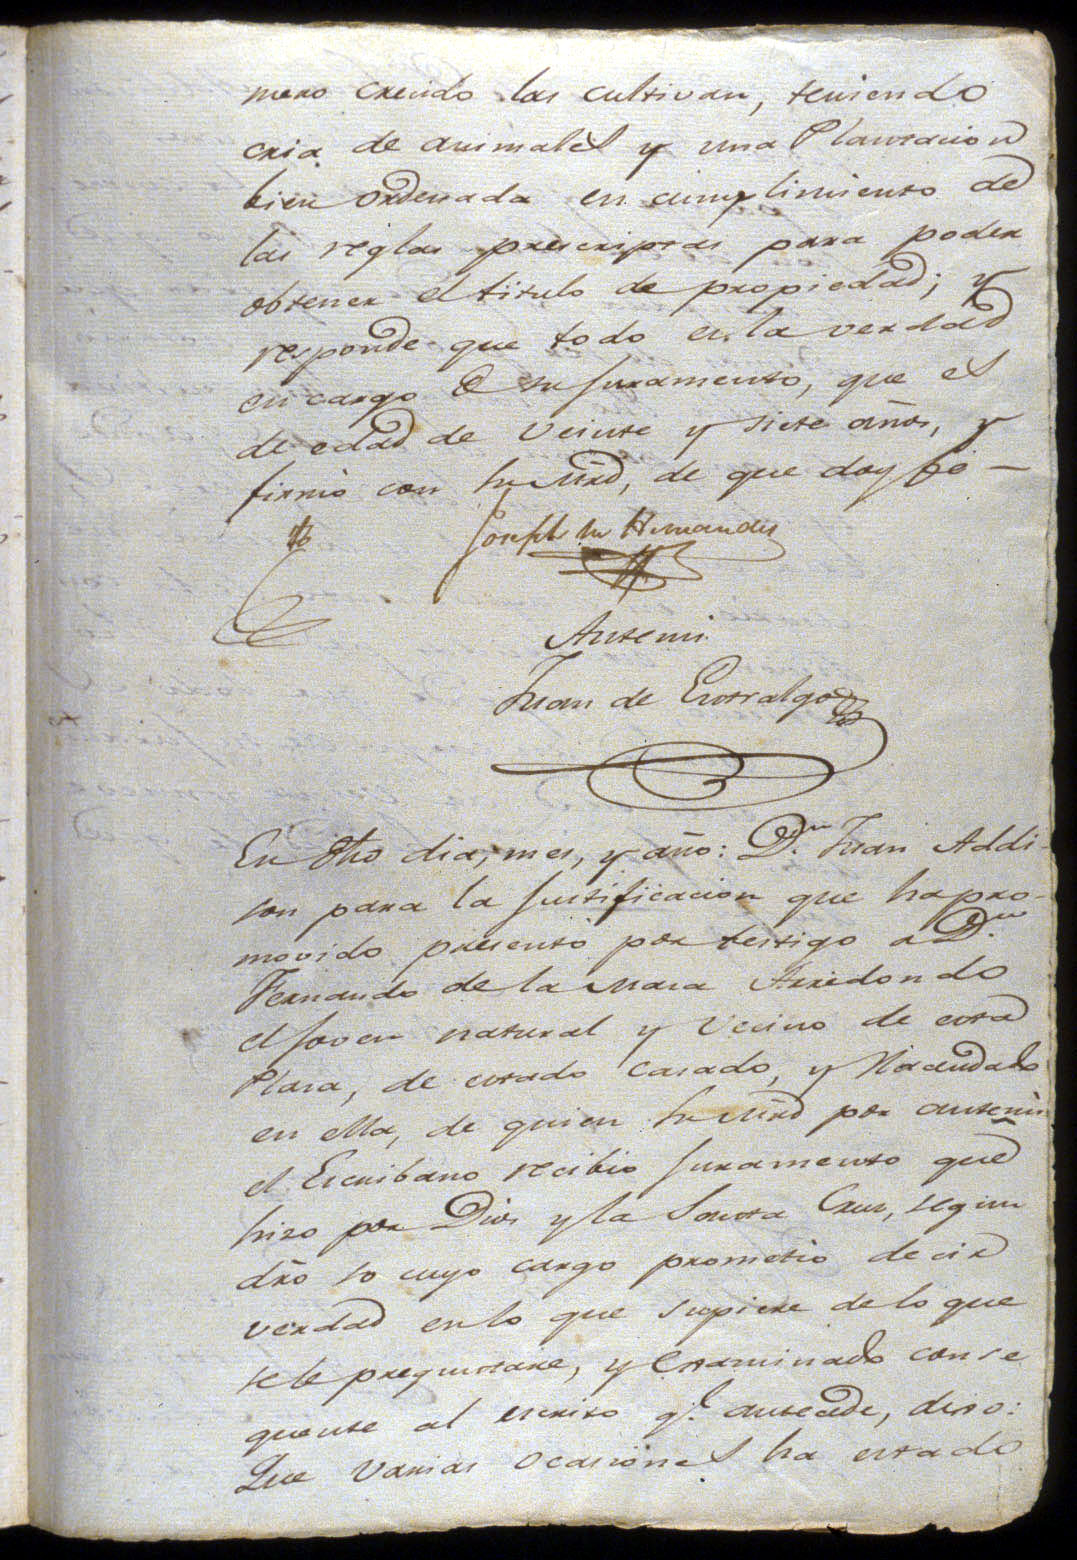 mero crecido las cultivan, teniendo
cria de animales y una Plantacion
bien ordenada en cumplimiento de
las reglas prescriptas para poder
obtener el titulo de propiedad; y
responde que todo es la verdad
en cargo de su juramento, que es
de edad de veinte y siete años, y
firmó con su Mrd, de que doy fé —
Joseph M Hernandez
Antemi
Juan de Entralgo
En dho dia, mes, y año: Dn. Juan Addi-
son para la justificacion que ha pro-
movido presentó por testigo a Dn.
Fernando de la Maza Arredondo
el joven natural y vecino de esta
Plaza, de estado casado, y Hacendado
en ella, de quien su Mrd por antemi
el Escribano recibio juramento que
hizo por Dios y la Santa Cruz, segun
dro so cuyo cargo prometió decir
verdad en lo que supiere de lo que
se le preguntare, y Examinado conse
quente al escrito qe. antecede, dixo:
Que varias ocasiones ha estado